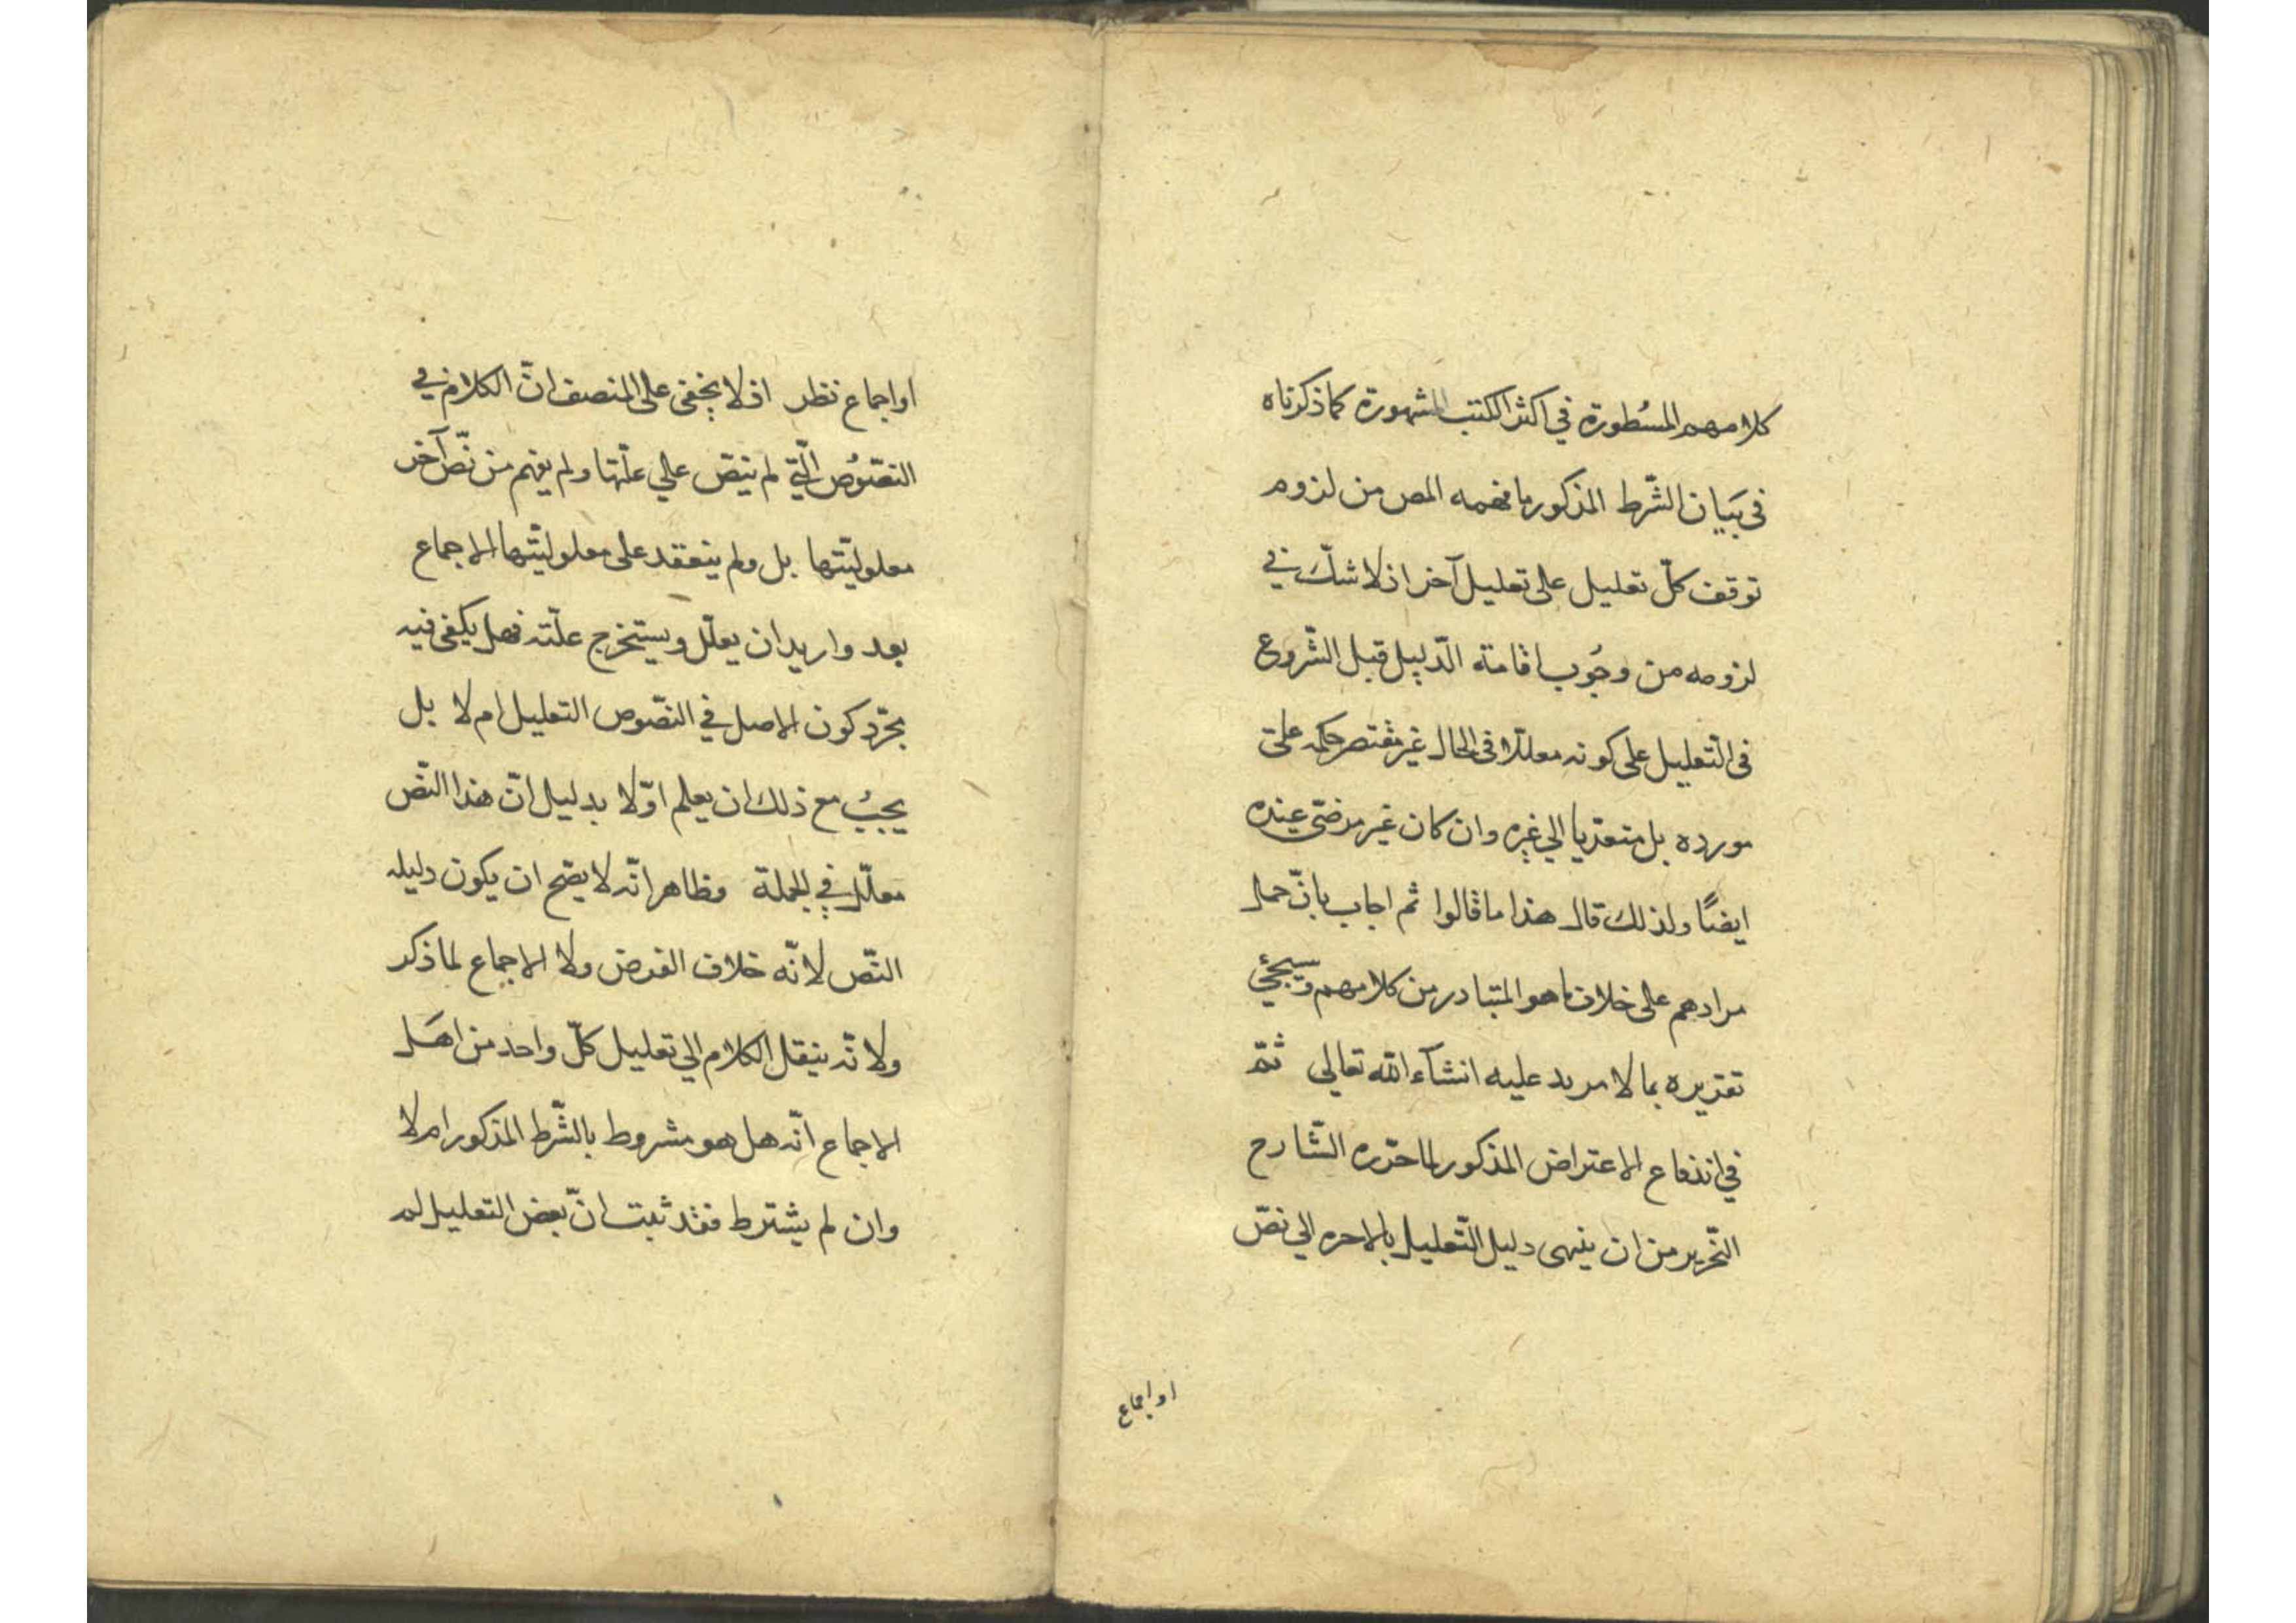 كلامهم المسُطورة في اكثر الكتب المشهورة كما ذكرناه
فى بيَان الشّرط المذكور ما فهمه المص من لزوم
توقف كلّ تعليل على تعليل آخر اذ لا شكّ في
لزومه من وجُوب اقامة الدّليل قبل الشّروع
فى التّعليل على كونه معلّلا فى الحال غير مقتصر حكمه على
مورده بل متعدّيا الي غيره وان كان غير مرضيّ عنده
ايضًا ولذلك قال هذا ما قالوا ثم اجاب بانّ حمل
مرادهم على خلاف ما هو المتبادر من كلامهم وسيجئ
تقريره بما لا مزيد عليه انشآء الله تعالي ثمّ
في اندفاع الاعتراض المذكور لما حرّره الشّارح
النّحرير من ان ينهى دليل التّعليل بالاخره الي نصّ
او اجماع
او اجماع نظر اذ لا يخفى على المنصف انّ الكلام في
النّصُوص الّتي لم ينصّ علي علّتها ولم يفهم من نصّ آخر
معلوليّتها بل ولم ينعقد على معلوليّتها الاجماع
بعد واريد ان يعلّل ويستخرج علّته فهل يكفى فيه
مجرّد كون الاصل في النصّوص التعليل ام لا بل
يجبُ مع ذلك ان يعلم اوّلا بدليل انّ هذا النّص
معلّل في الجملة وظاهر انّه لا يصّح ان يكون دليله
النّص لانّه خلاف الفرض ولا الاجماع لما ذكر
ولانّه ينقل الكلام الي تعليل كلّ واحد من اهَل
الاجماع انّه هل هو مشروط بالشّرط المذكور ام لا
وان لم يشترط فقد ثبت انّ بعض التعليل لم